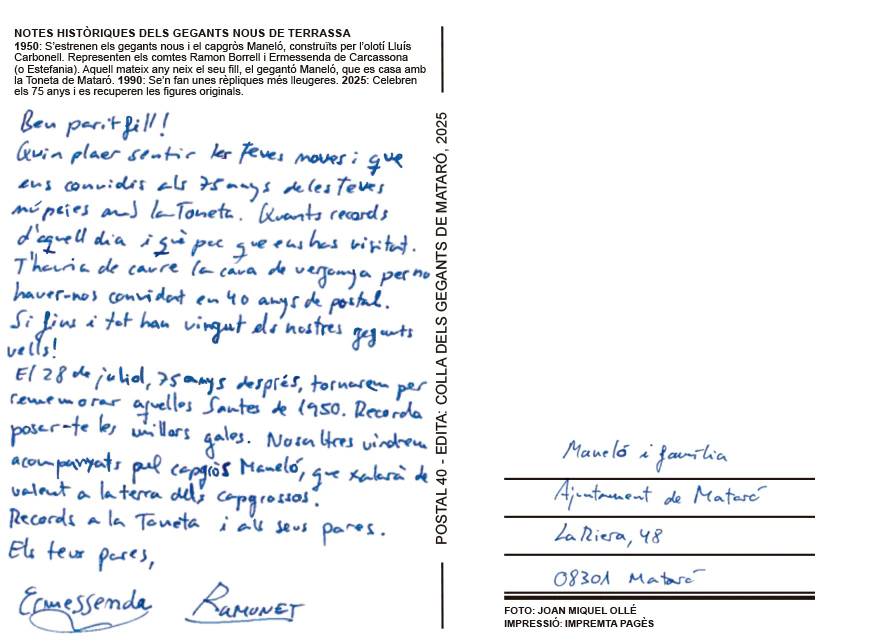 NOTES HISTÒRIQUES DELS GEGANTS NOUS DE TERRASSA
1950: S'estrenen els gegants nous i el capgròs Maneló, construïts per l'olotí Lluís
Carbonell. Representen els comtes Ramon Borrell i Ermessenda de Carcassona
(o Estefania). Aquell mateix any neix el seu fill, el gegantó Maneló, que es casa amb
la Toneta de Mataró. 1990: Se'n fan unes rèpliques més lleugeres. 2025: Celebren
els 75 anys i es recuperen les figures originals.
Ben parit fill!
Quin plaer sentir les teves noves i que
ens convidis als 75 anys de les teves
núpcies amb la Toneta. Quants records
d'aquell dia i què poc que ens has visitat.
T'hauria de caure la cara de vergonya per no
haver-nos convidat en 40 anys de postal.
Si fins i tot han vingut els nostres gegants
vells!
El 28 de juliol, 75 anys després, tornarem per
rememorar aquelles Santes de 1950. Recorda
posar-te les millors gales. Nosaltres vindrem
acompanyats pel capgròs Maneló, que xalarà de
valent a la terra dels capgrossos.
Records a la Toneta i als seus pares.
Els teus pares,
Ermessenda Ramonet
POSTAL 40 - EDITA: COLLA DELS GEGANTS DE MATARÓ, 2025
Maneló i família
Ajuntament de Mataró
La Riera, 48
08301 Mataró
FOTO: JOAN MIQUEL OLLÉ
IMPRESSIÓ: IMPREMTA PAGÈS